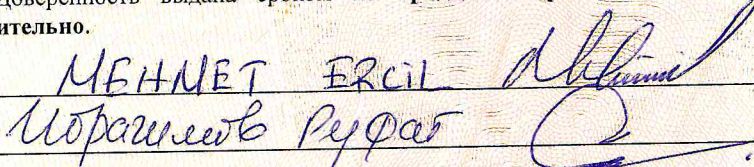 доверенность выдана сроком
ительно.
MEHMET ERCİL
Ибрагимов Руфат